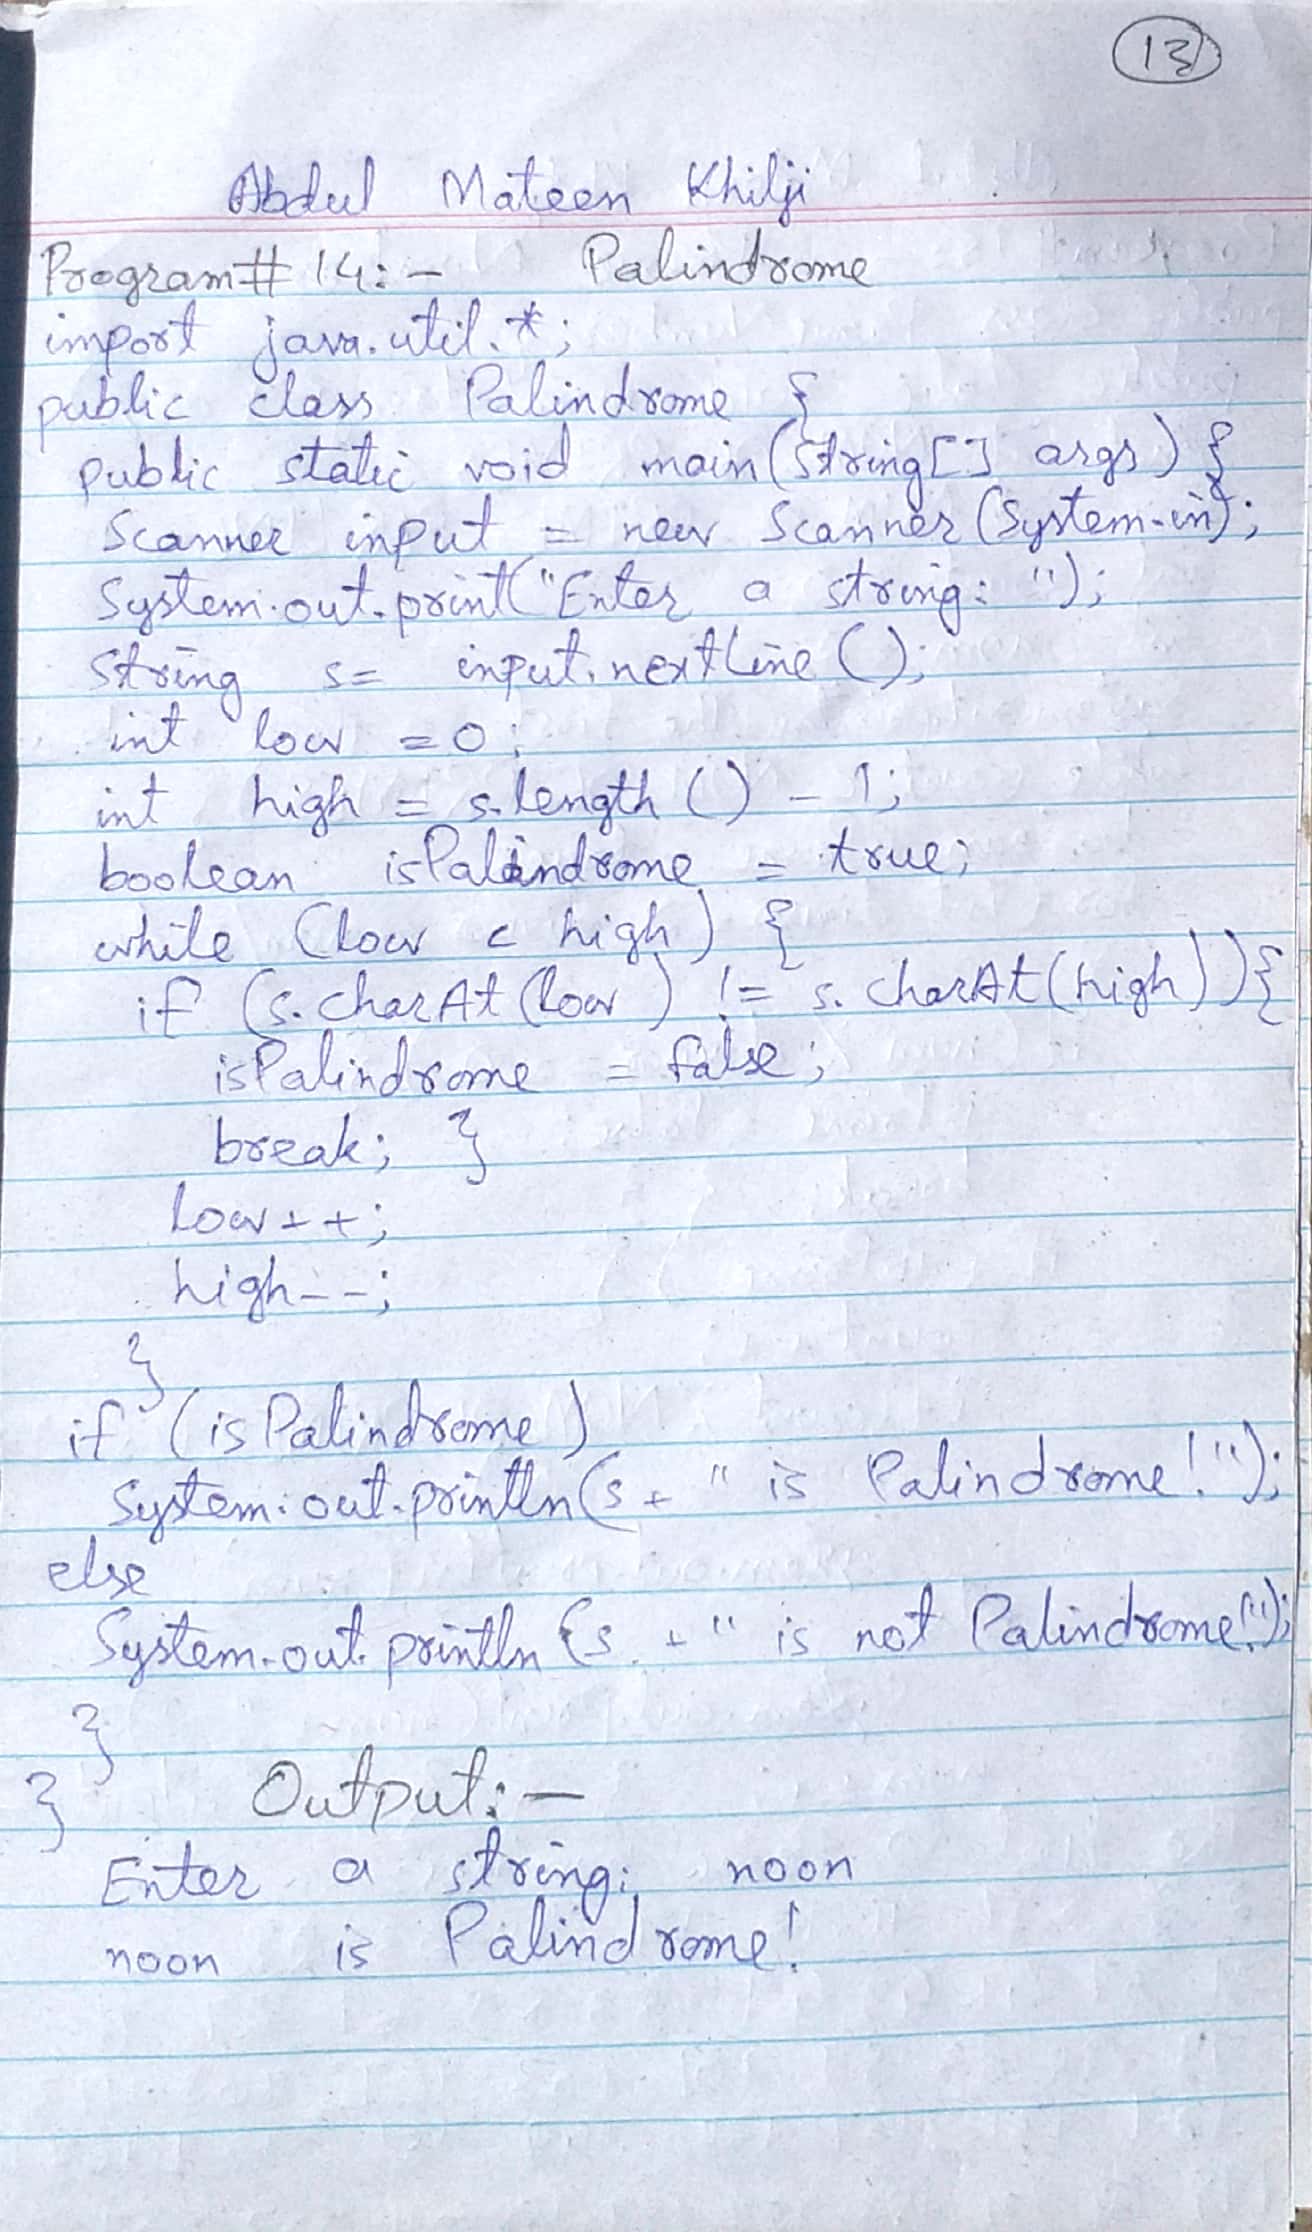 13
Abdul Mateen Khilji
Program# 14:- Palindrome
import java.util.*;
public class Palindrome {
public static void main(String[] args) {
Scanner input = new Scanner(System.in);
System.out.print("Enter a string: ");
String s= input.nextLine();
int low =0;
int high = s.length() - 1;
boolean isPalindrome = true;
while (low < high) {
if (s.charAt(low) != s.charAt(high)){
isPalindrome = false;
break; }
low++;
high--;
}
if (isPalindrome)
System.out.println(s+ " is Palindrome!");
else
System.out.println(s + " is not Palindrome!");
}
} Output:-
Enter a string: noon
noon is Palindrome!